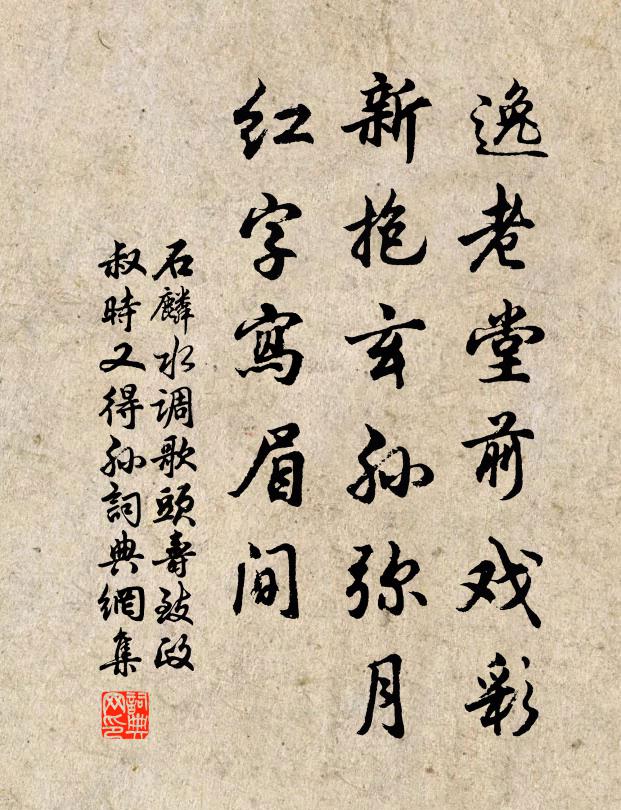 逸老堂前戏彩
新抱玄孙弥月
红字寫眉间
石麟水调歌頭壽致政
叔時又得孙詞典網集
詞典网印